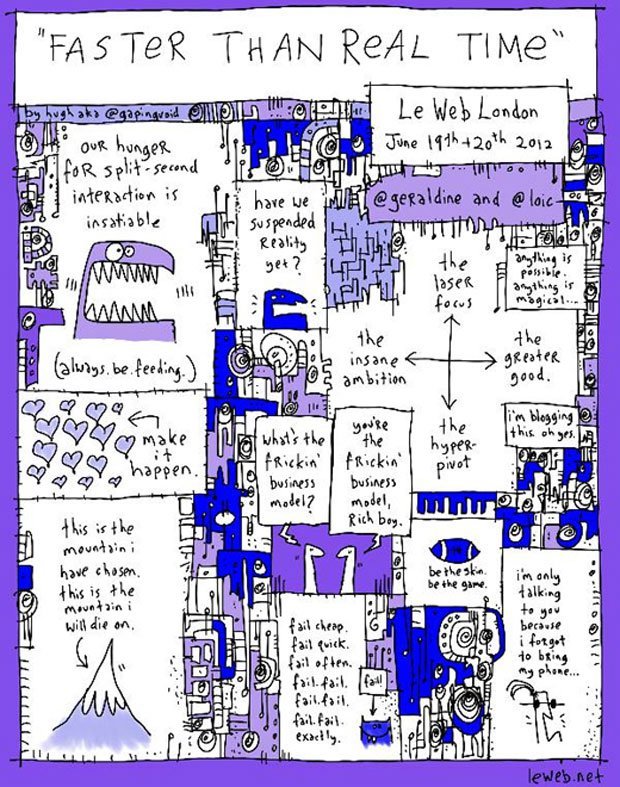 "FASTER THAN REAL TIME"
by hugh aka @gapingvoid
Le Web London
June 19th + 20th 2012
@geraldine and @loic
our hunger
for split-second
interaction is
insatiable
(always.be.feeding.)
have we
suspended
Reality
yet?
the
laser
focus
the
insane
ambition
the
greater
good.
the
hyper-
pivot
anything is
possible.
anything is
magical...
i'm blogging
this. oh yes.
make
it
happen.
what's the
frickin'
business
model?
you're
the
frickin'
business
model,
Rich boy.
this is the
mountain i
have chosen.
this is the
mountain i
will die on.
be the skin.
be the game.
fail cheap.
fail quick.
fail often.
fail.fail.
fail.fail.
fail.fail.
exactly.
fail!
i'm only
talking
to you
because
i forgot
to bring
my phone...
leweb.net